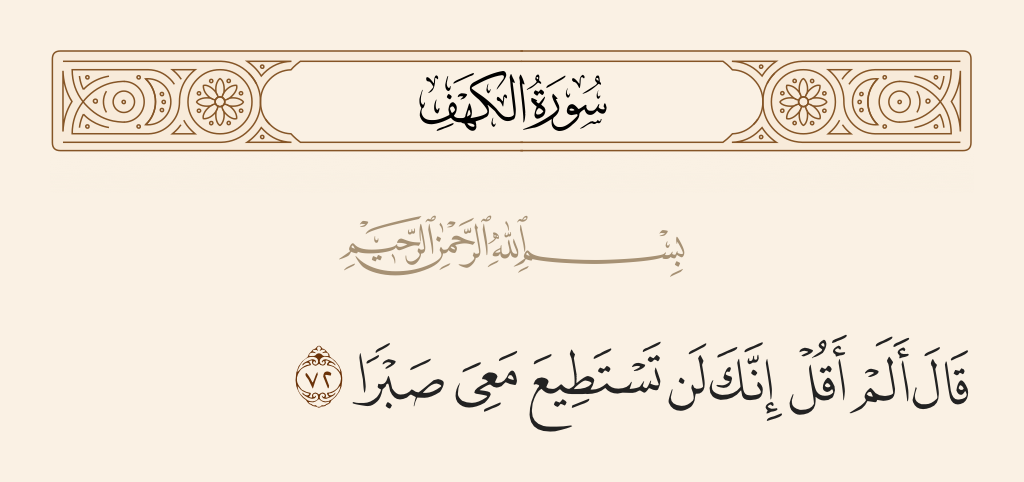 سُورَةُ الكَهۡفِ
بِسۡمِ ٱللَّهِ ٱلرَّحۡمَٰنِ ٱلرَّحِيمِ
قَالَ أَلَمۡ أَقُلۡ إِنَّكَ لَن تَسۡتَطِيعَ مَعِيَ صَبۡرٗا ٧٢